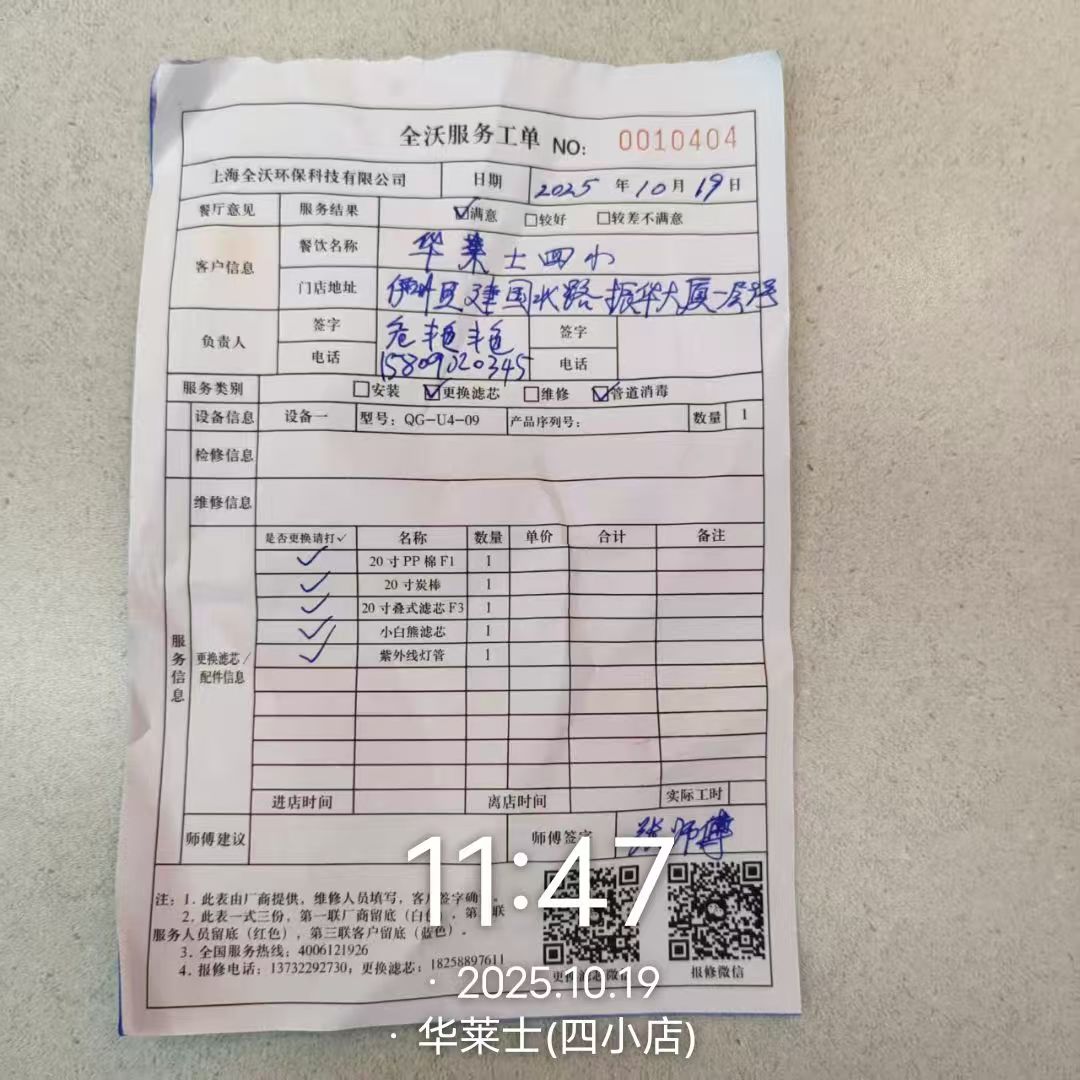 全沃服务工单 NO: 0010404
上海全沃环保科技有限公司 日期 2025 年 10 月 19 日
餐厅意见 服务结果 ☑满意 □较好 □较差不满意
客户信息 餐饮名称 华莱士四小
门店地址 建国北路 振华大厦一层
负责人 签字 危艳艳 签字
电话 15809020345 电话
服务类别 □安装 ☑更换滤芯 □维修 ☑管道消毒
设备信息 设备一 型号: QG-U4-09 产品序列号: 数量 1
检修信息
维修信息
服务信息
更换滤芯/配件信息
是否更换请打✓ 名称 数量 单价 合计 备注
✓ 20寸PP棉F1 1
✓ 20寸炭棒 1
✓ 20寸叠式滤芯F3 1
✓ 小白熊滤芯 1
✓ 紫外线灯管 1
进店时间 离店时间 实际工时
师傅建议 师傅签字 张师傅
注: 1. 此表由厂商提供, 维修人员填写, 客户签字确
2. 此表一式三份, 第一联厂商留底 (白色), 第 联
服务人员留底 (红色), 第三联客户留底 (蓝色)。
3. 全国服务热线: 4006121926
4. 报修电话: 13732292730, 更换滤芯: 18258897611
报修微信
11:47
· 2025.10.19
· 华莱士(四小店)